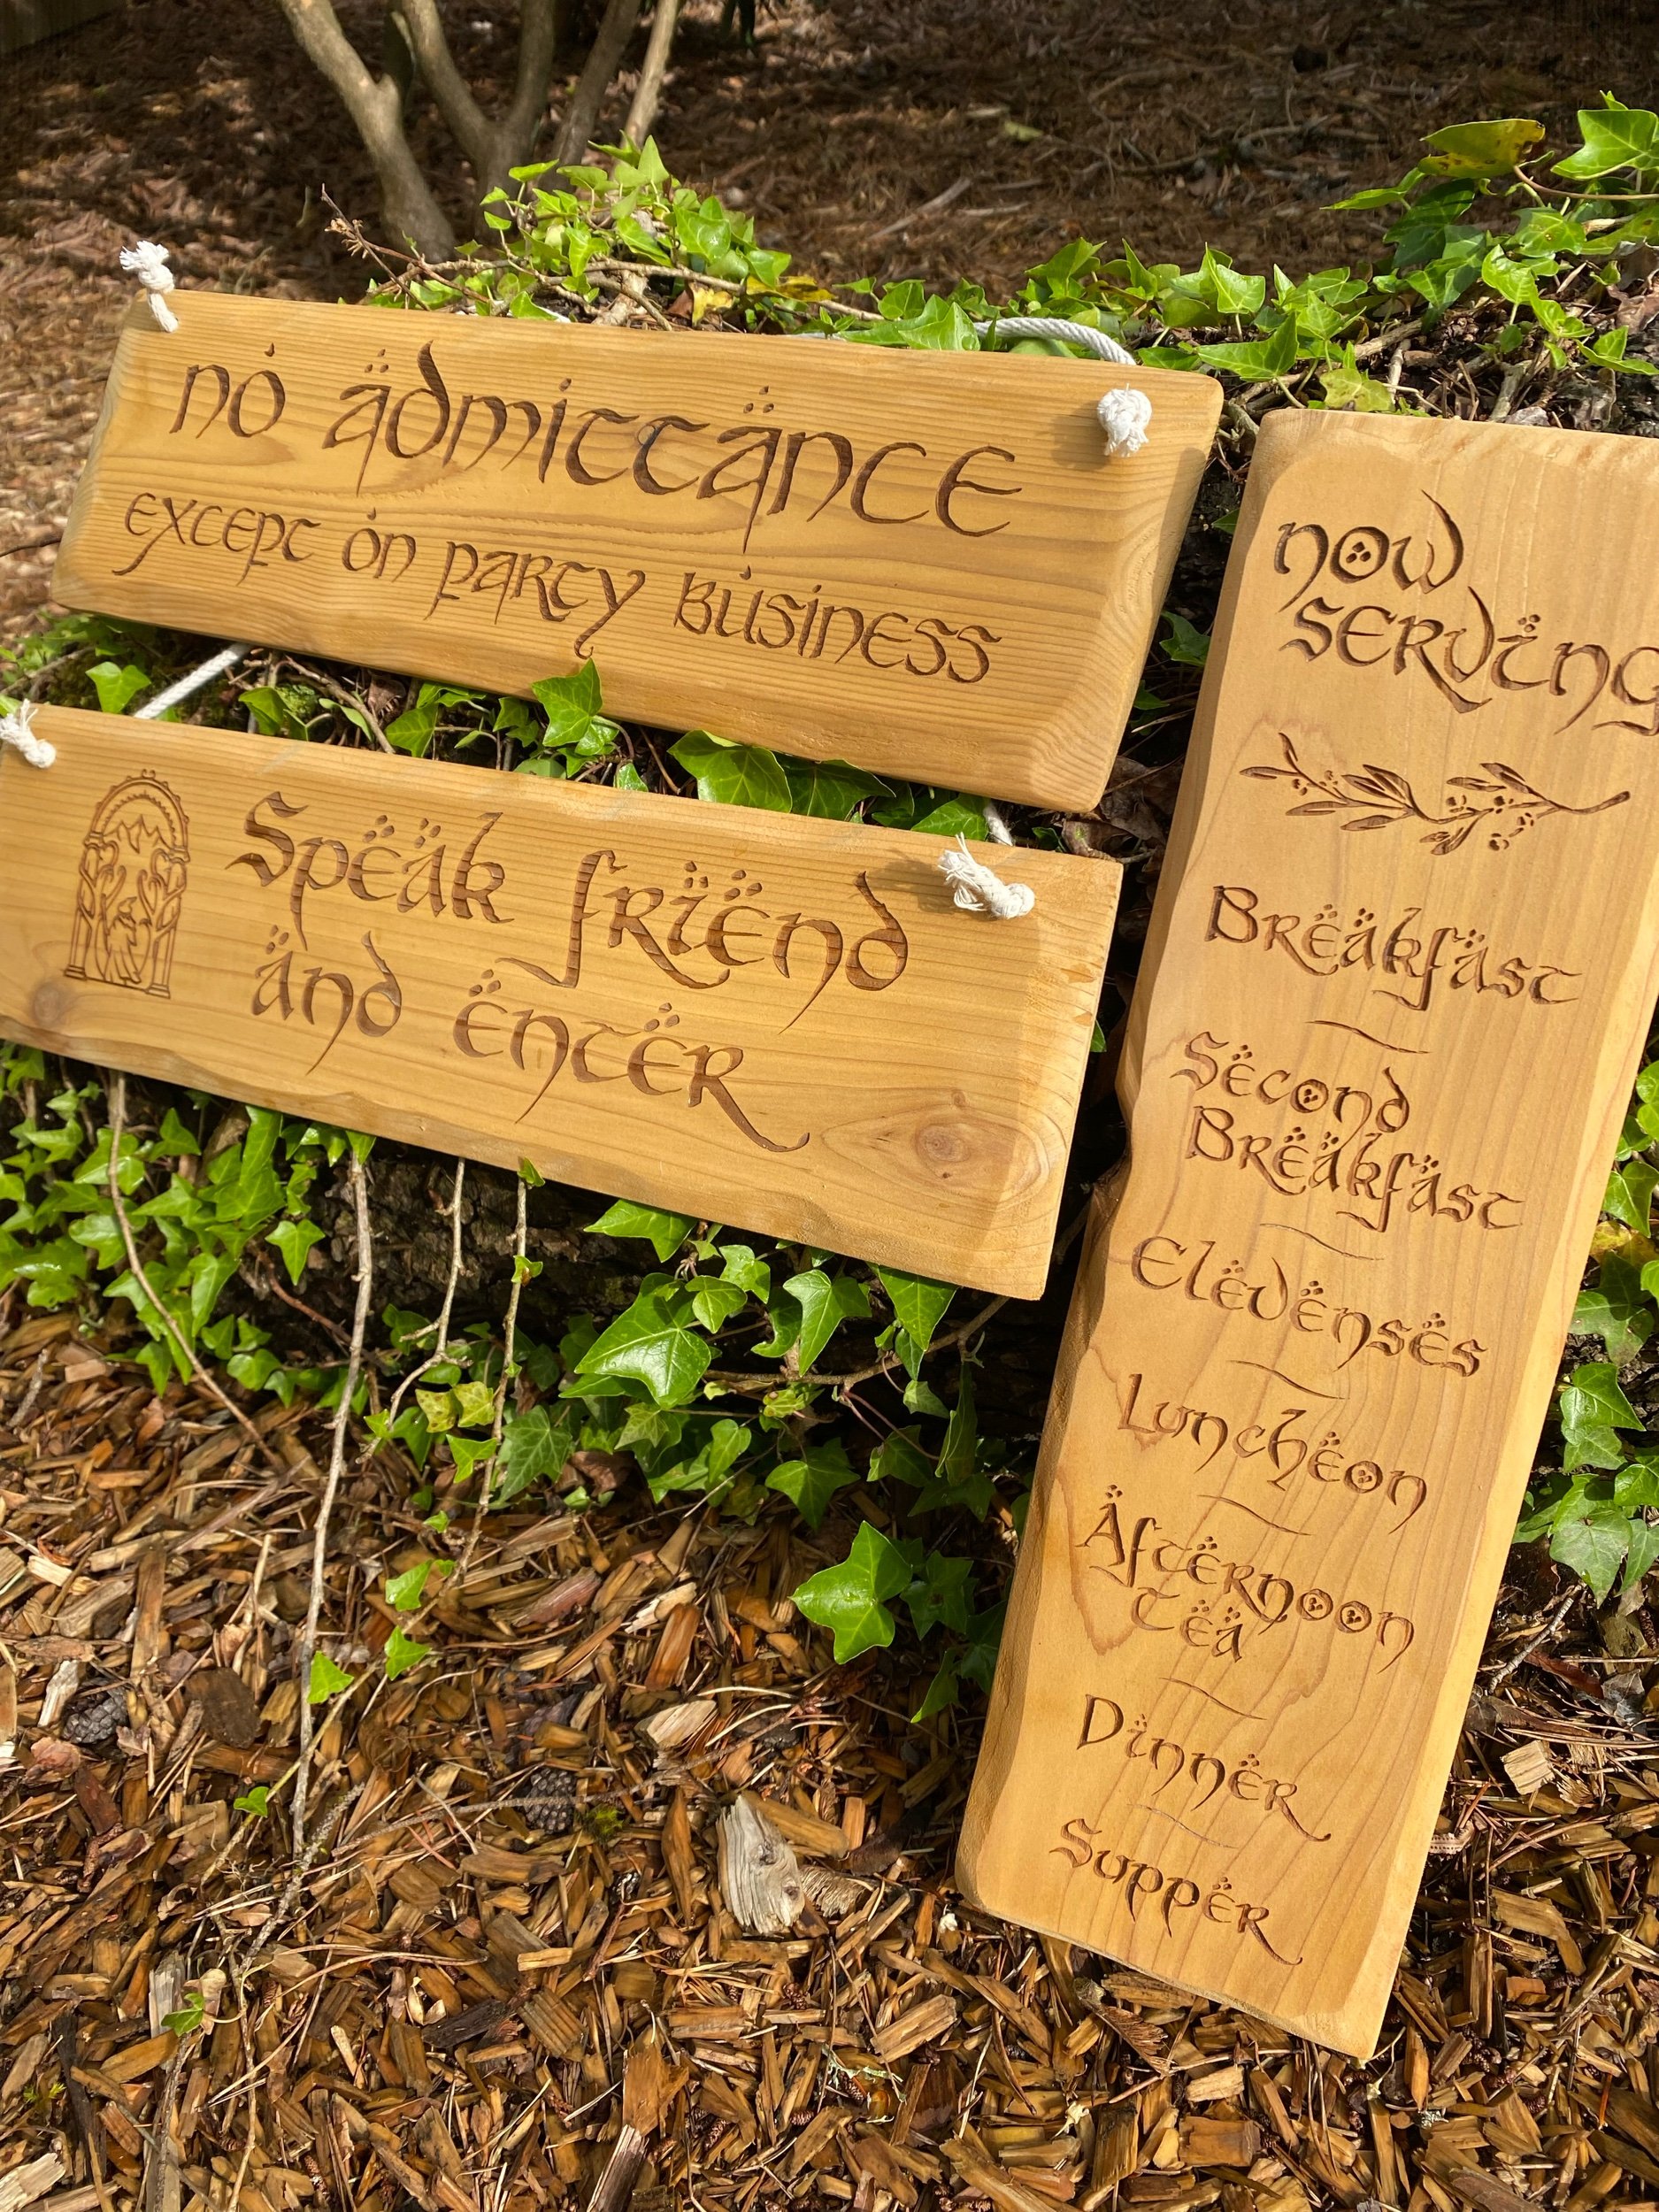 nó ädmittänce
except ón party Búsiness
Spëäk frïënd
änd ëntër
now
servïng
Brëäkfäst
Sëcond
Brëäkfäst
Elëvënsës
Lunchëon
Äftërnoon
tëä
Dïnnër
Suppër